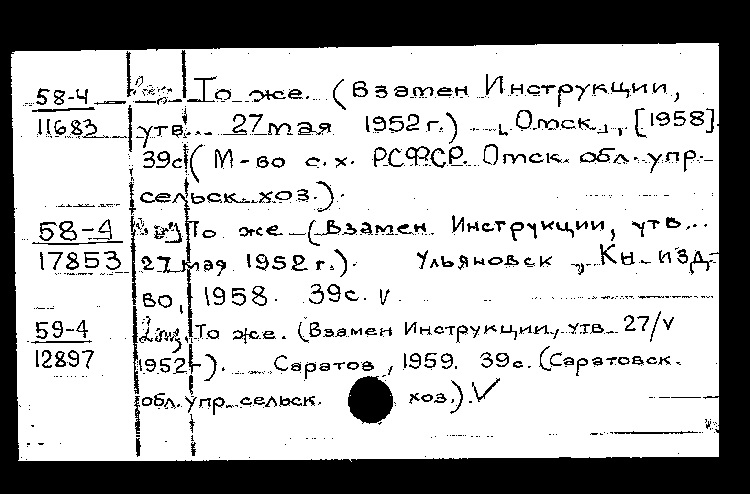 58-4 То же. (Взамен Инструкции,
11683 утв... 27 мая 1952 г.) , Омск, , [1958].
39с (М-во с.х. РСФСР. Омск. обл. упр.
сельск. хоз.).
58-4 То же (Взамен Инструкции, утв...
17853 27 мая 1952 г.). Ульяновск, Кн. изд-
во, 1958. 39с. v
59-4 То же. (Взамен Инструкции, утв 27/V
12897 1952г). Саратов, 1959. 39с. (Саратовск.
обл. упр. сельск. хоз.). V